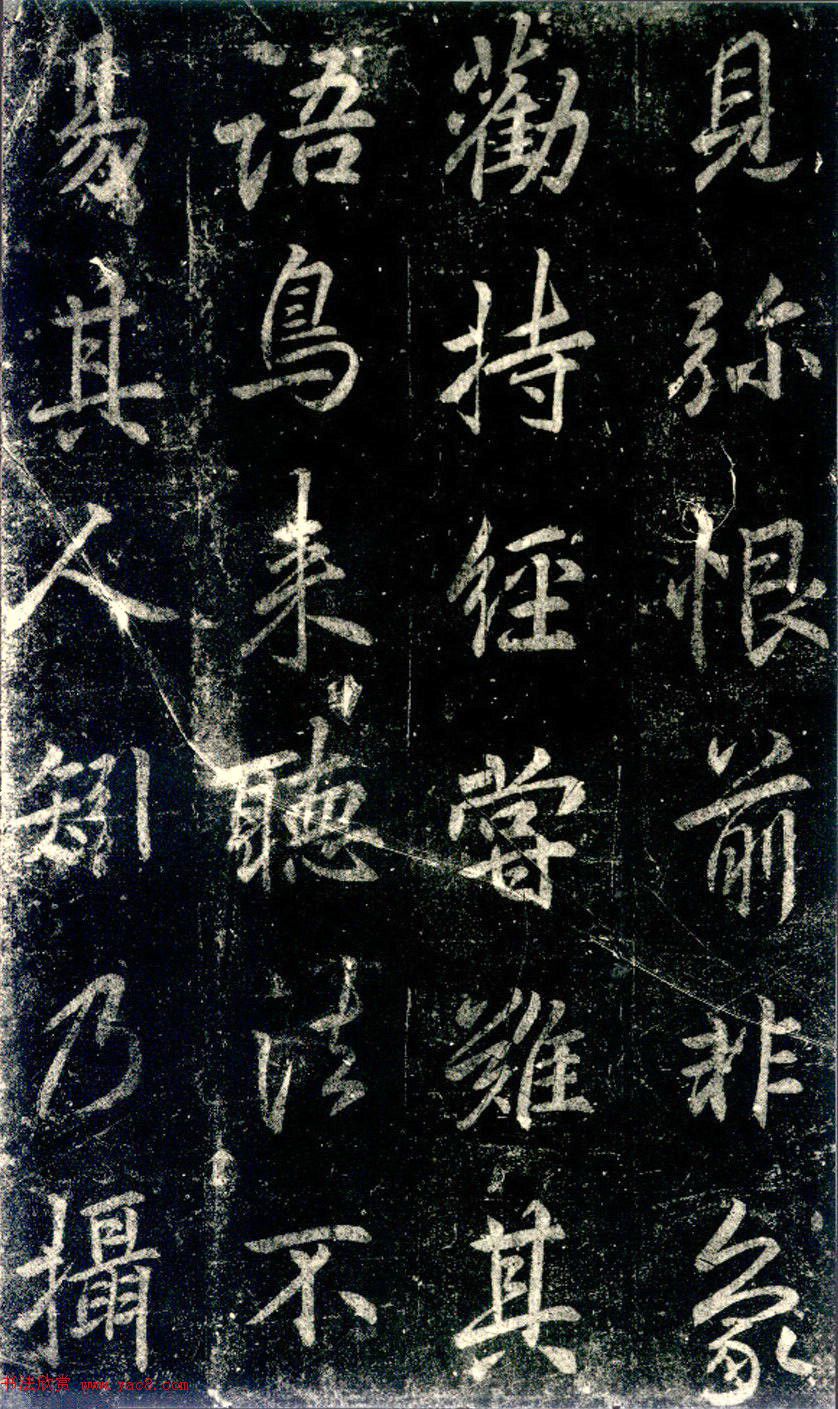 見弥恨前非象
勸持經嘗難其
語鳥来聽法不
易其人矧乃攝
书法欣赏 www.yac8.com